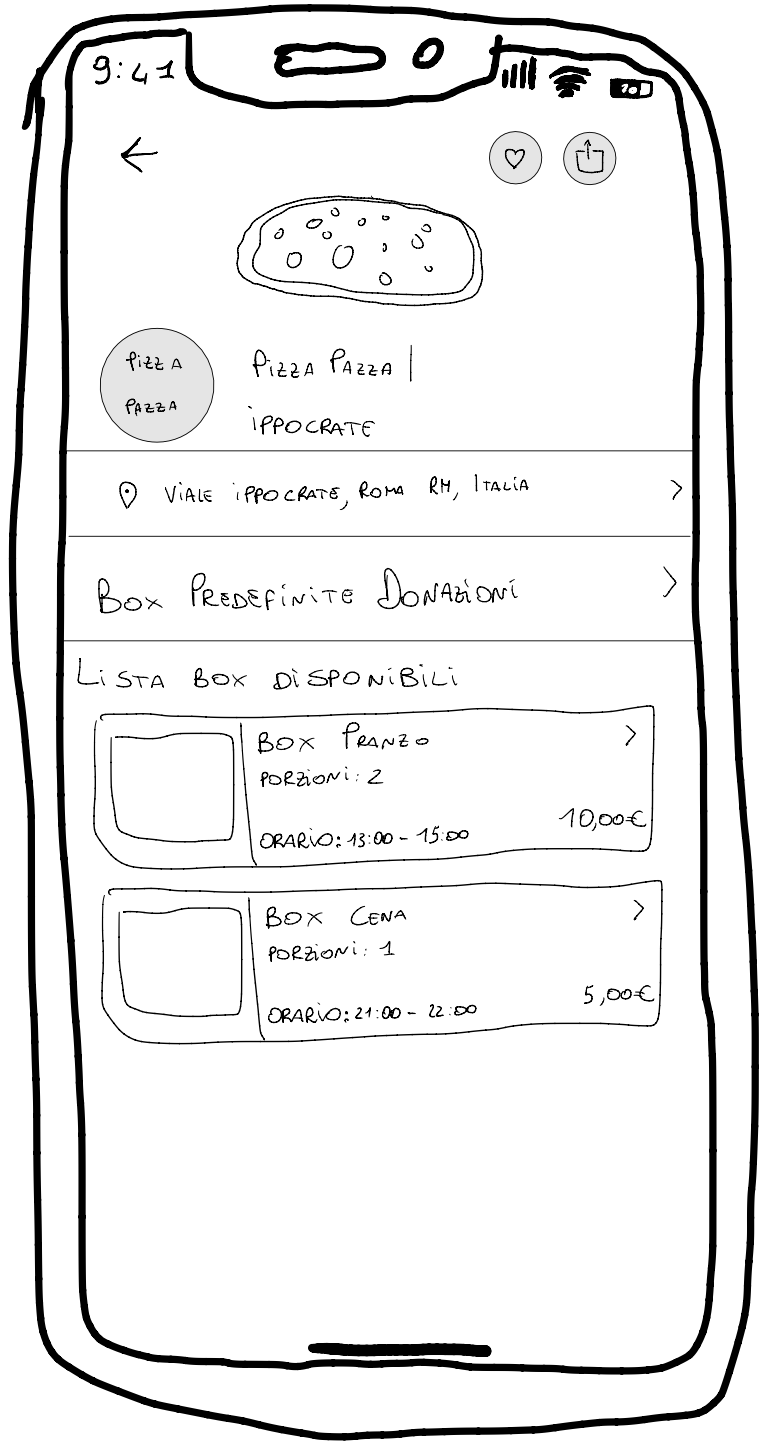 9:41
70
PIZZA
PAZZA
PIZZA PAZZA |
IPPOCRATE
VIALE IPPOCRATE, ROMA RM, ITALIA
BOX PREDEFINITE DONAZIONI
LISTA BOX DISPONIBILI
BOX PRANZO
PORZIONI: 2
10,00€
ORARIO: 13:00 - 15:00
BOX CENA
PORZIONI: 1
5,00€
ORARIO: 21:00 - 22:00